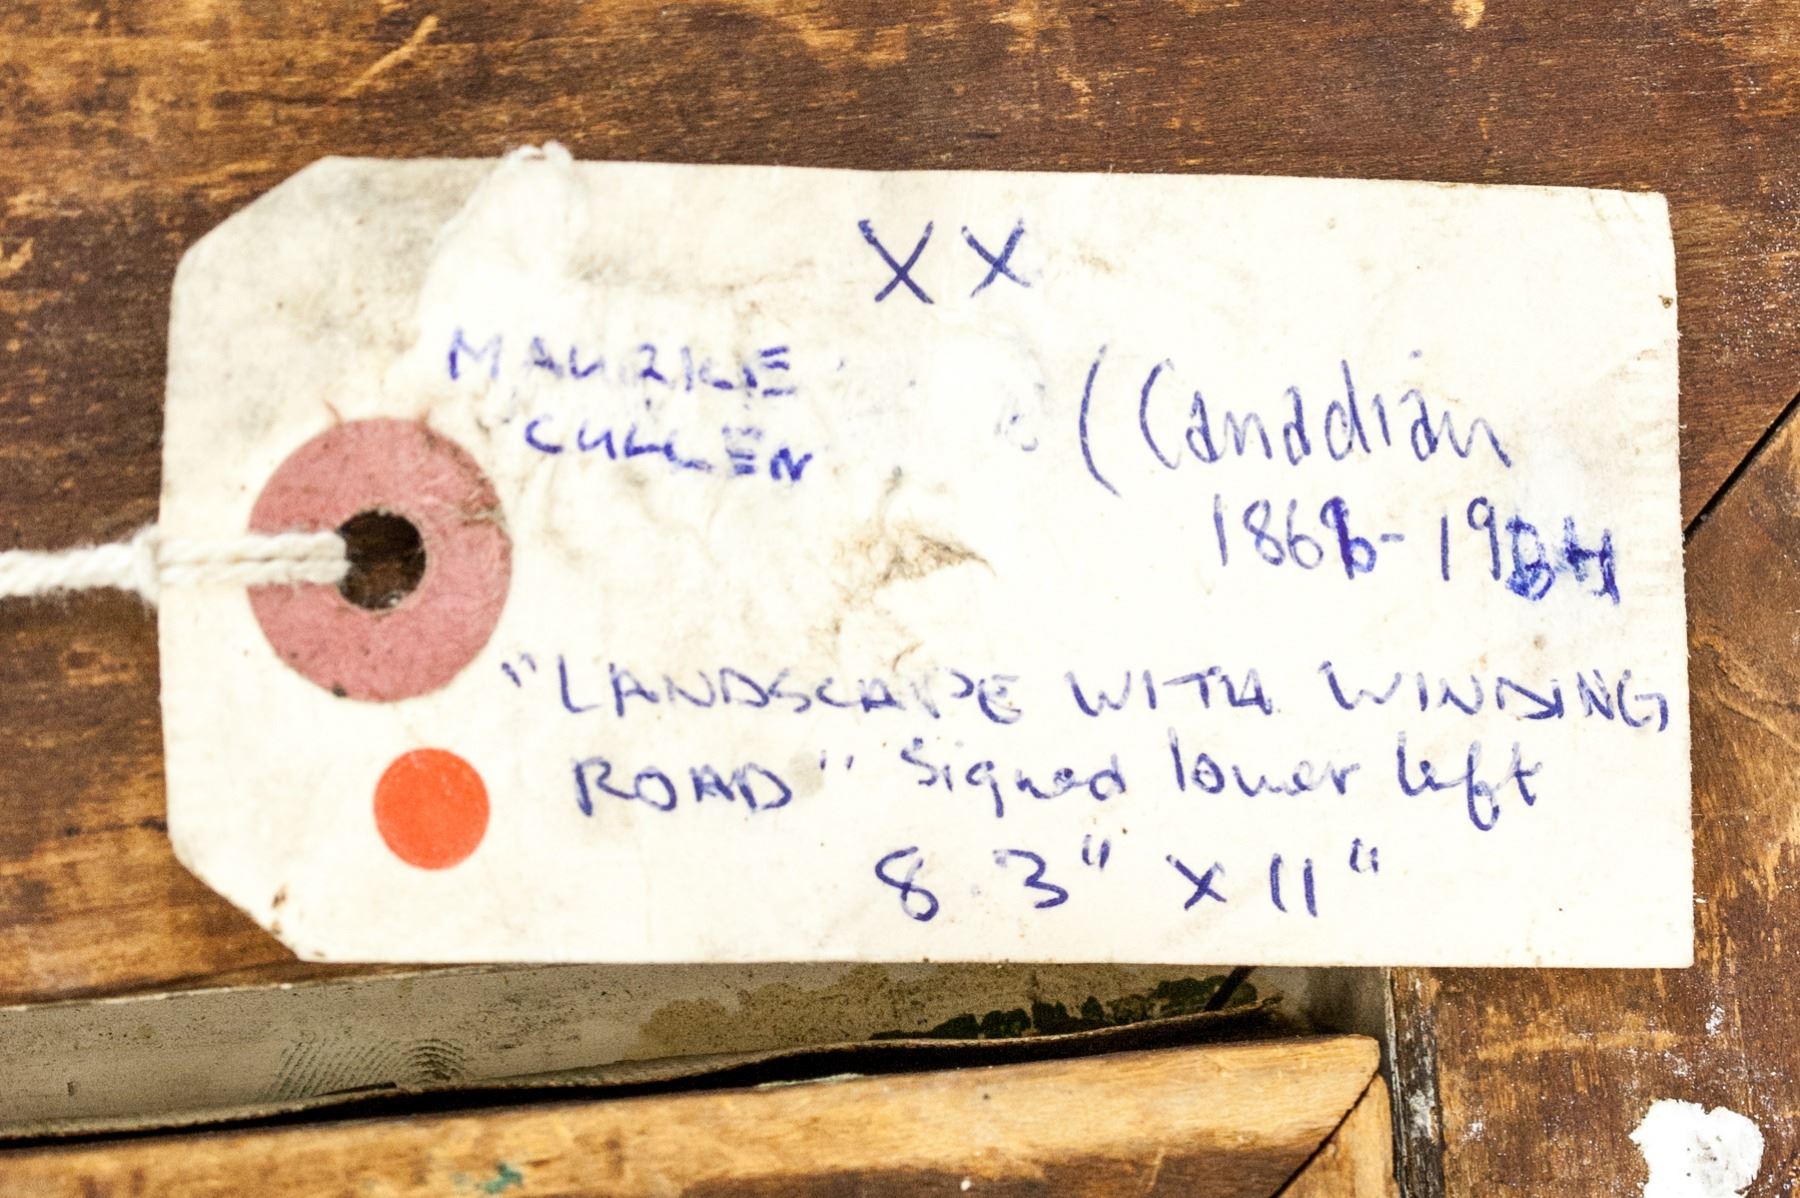 XX
MAURICE
CULLEN
(Canadian
1866-1934
"LANDSCAPE WITH WINDING
ROAD" Signed lower left
8.3" x 11"